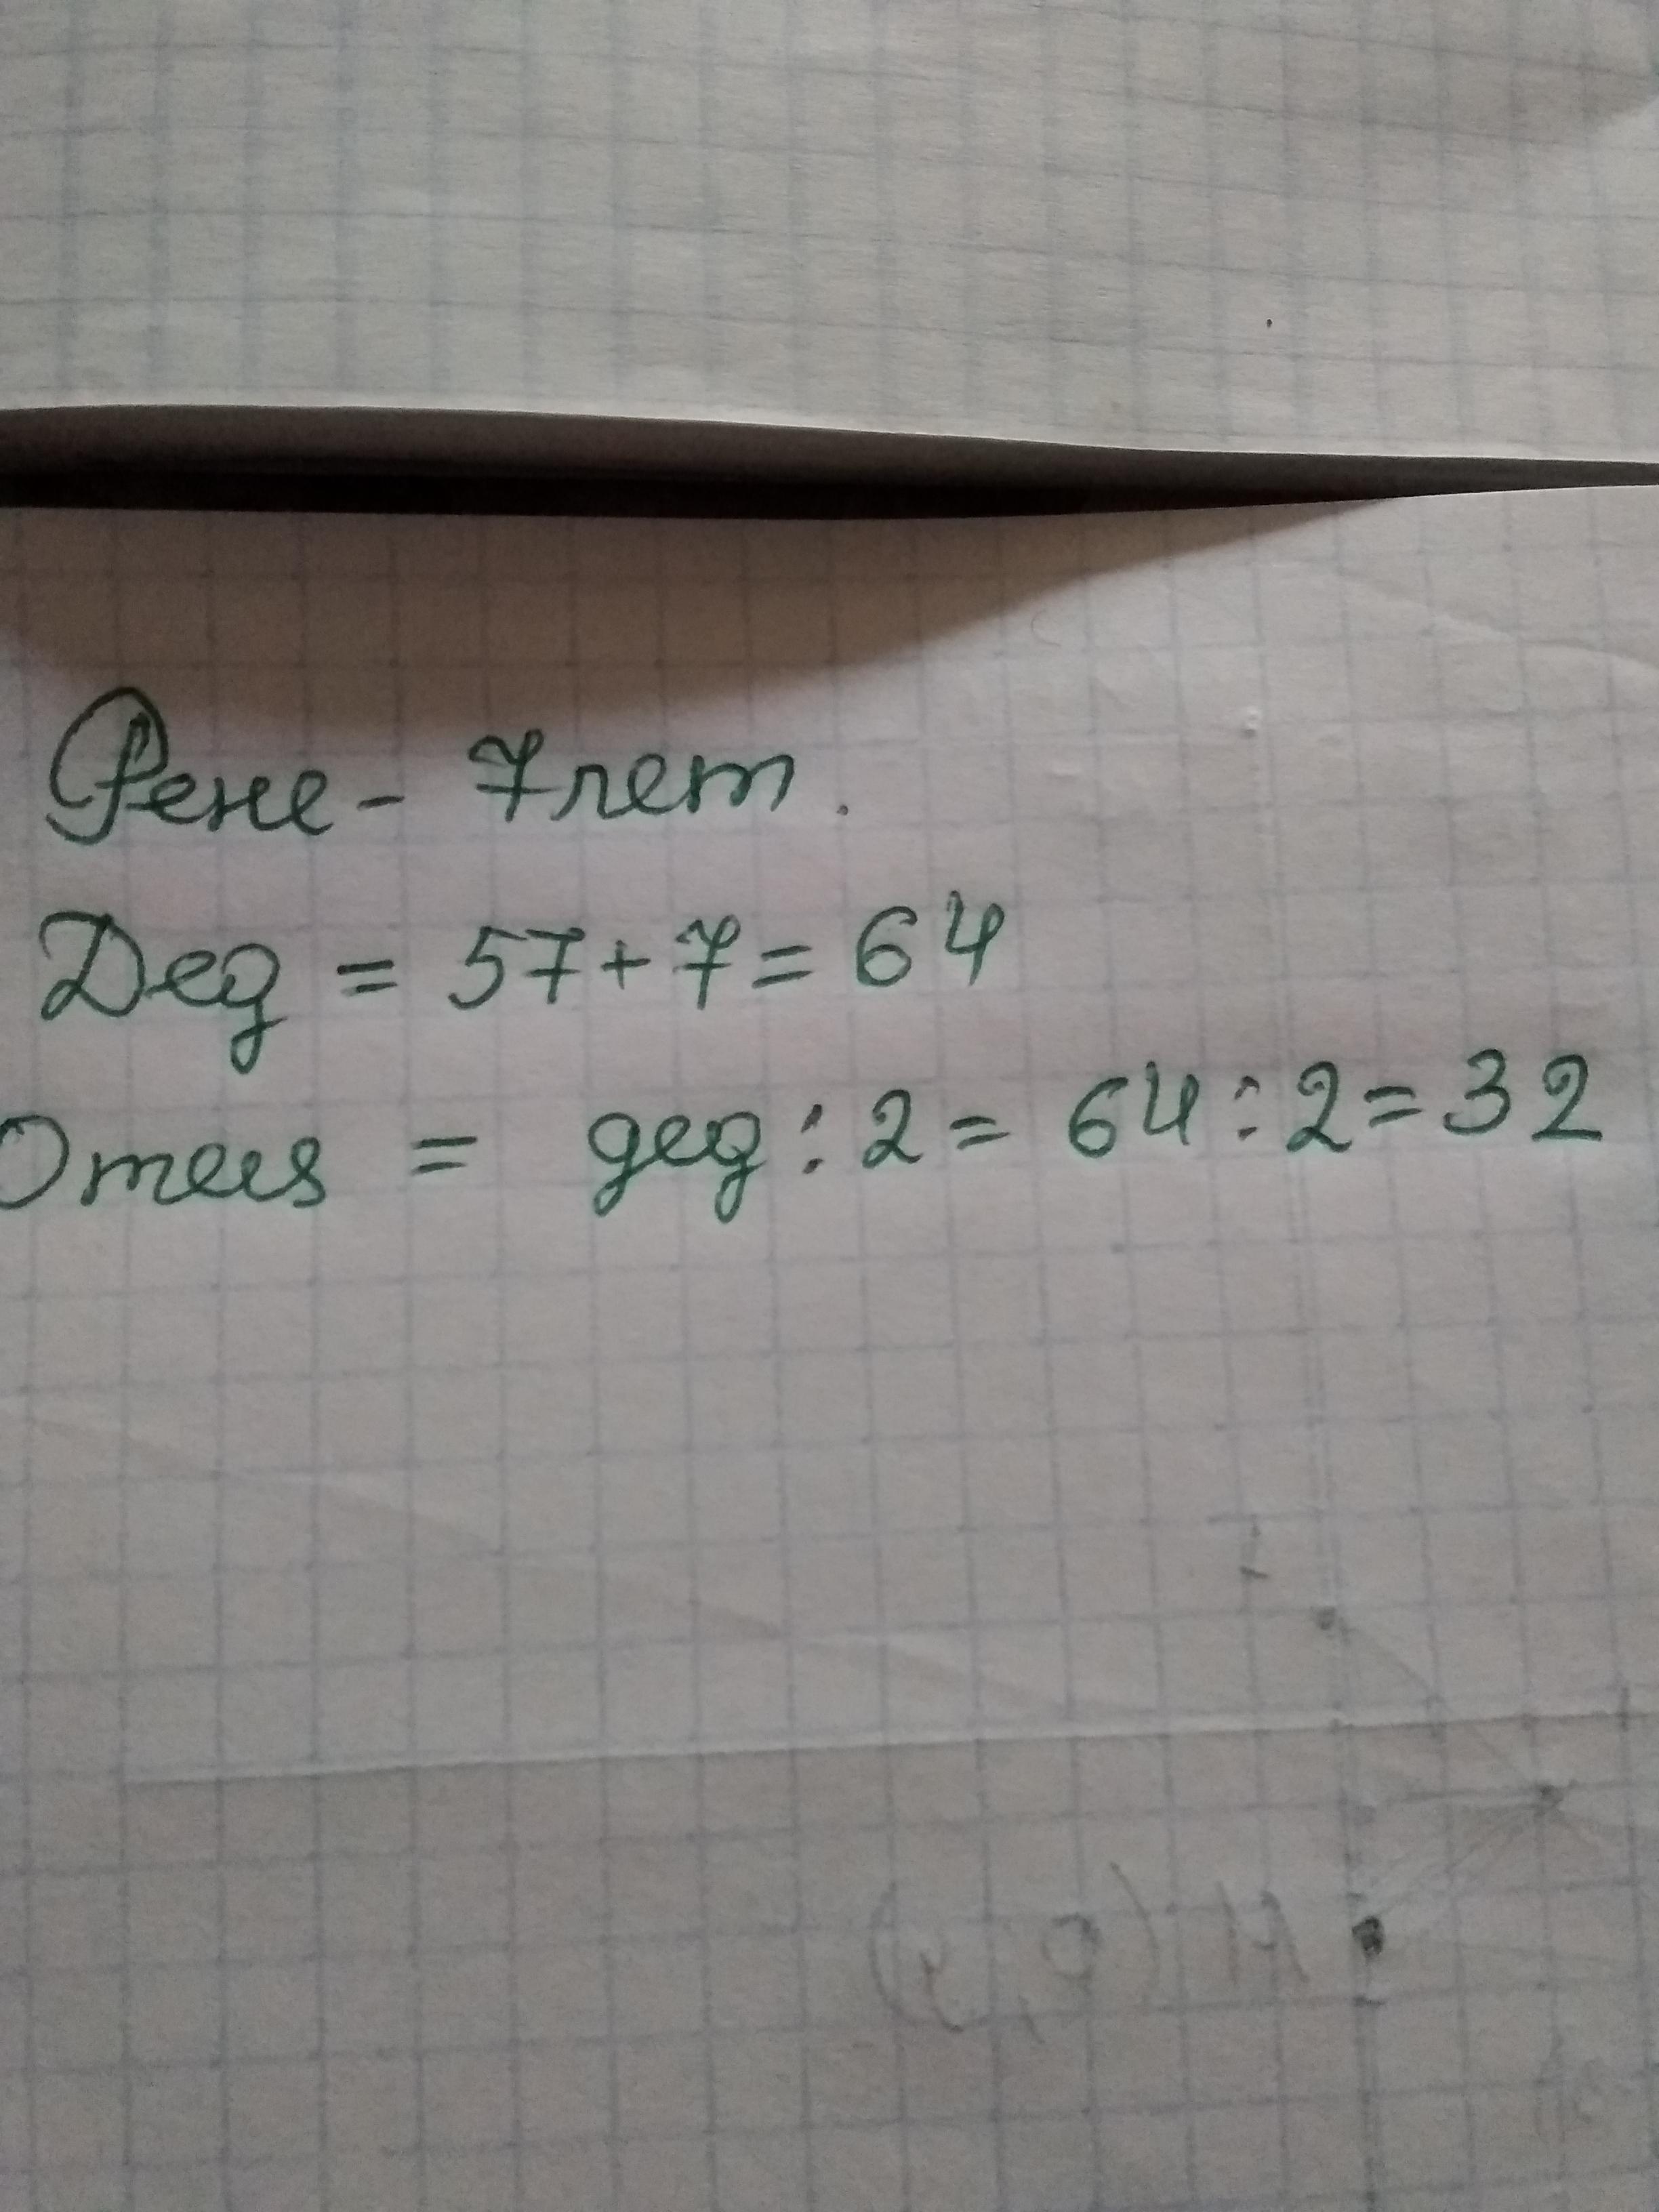 Рене - 7 лет.
Дед = 57 + 7 = 64
Отец = дед : 2 = 64 : 2 = 32